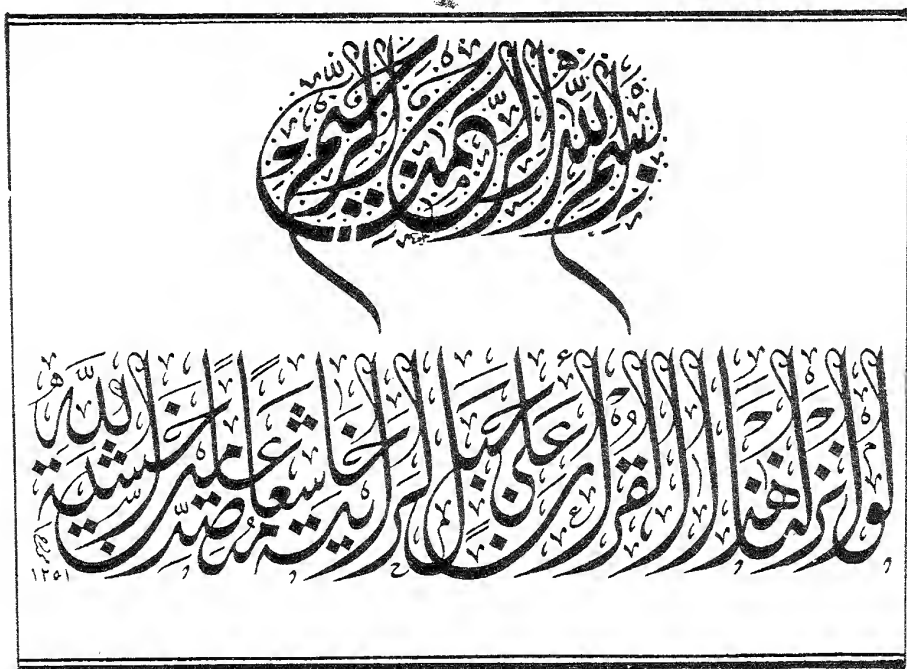 بِسْمِ اللّٰهِ الرَّحْمٰنِ الرَّحِيمِ
لَوْ أَنْزَلْنَا هٰذَا الْقُرْآنَ عَلَىٰ جَبَلٍ لَرَأَيْتَهُ خَاشِعًا مُتَصَدِّعًا مِنْ خَشْيَةِ اللّٰهِ
١٣٥١